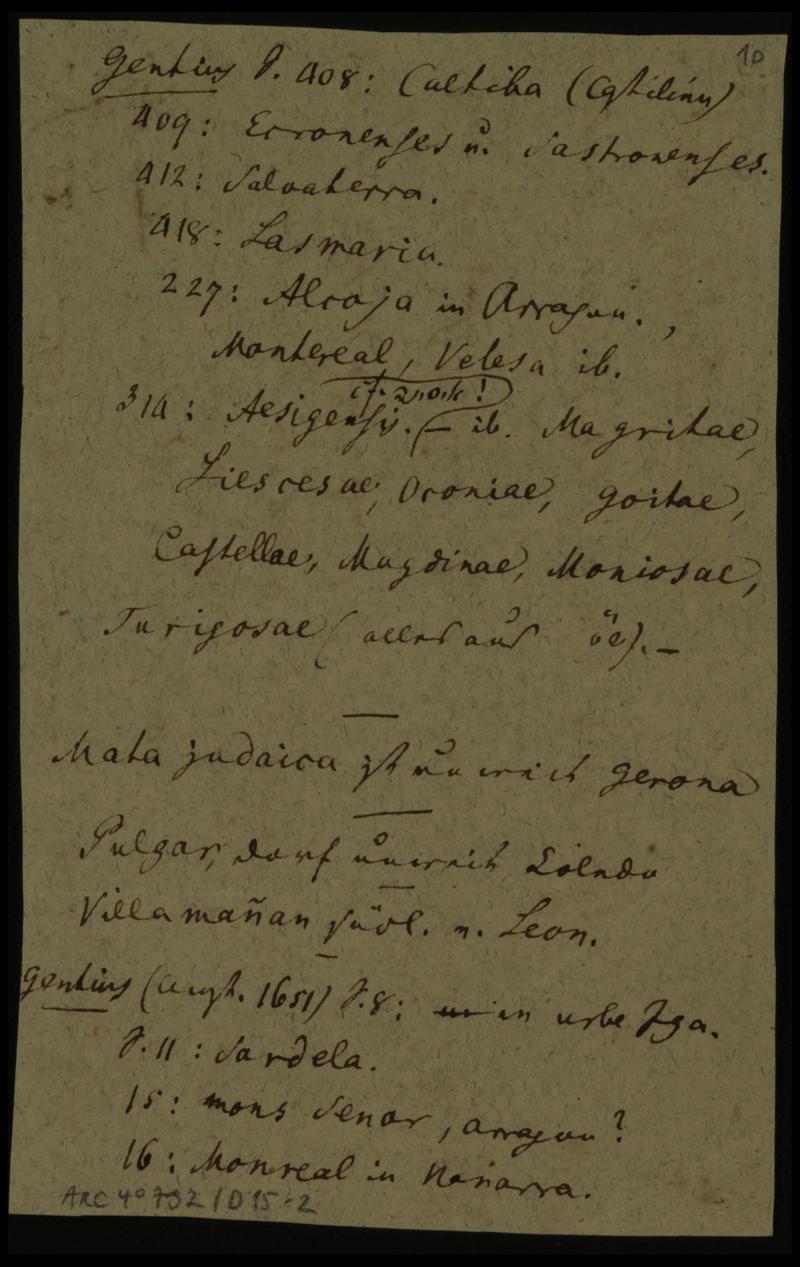 10
Gentius S. 408: Caltiba (Cqtilinu)
409: Ecronenses u. Sastronenses.
412: Salvaterra.
418: Lasmaria.
227: Alcoja in Arragon.,
Montereal, Velesa ib.
314: Aesigensis. (— ib. Magritae,
cf. !)
Liescesae, Oconiae, Goitae,
Castellae, Magdinae, Moniosae,
Turigosae (alles aus öe). —
Mata judaica ist unweit Gerona
Pulgar, Dorf unweit Toledo
Villamañan südl. v. Leon.
Gentius (Amst. 1651) S. 8: in urbe Iga.
S. 11: Sardela.
15: mons Senar, Arragon?
16: Monreal in Navarra.
ARC 4° 792 / D 15-2